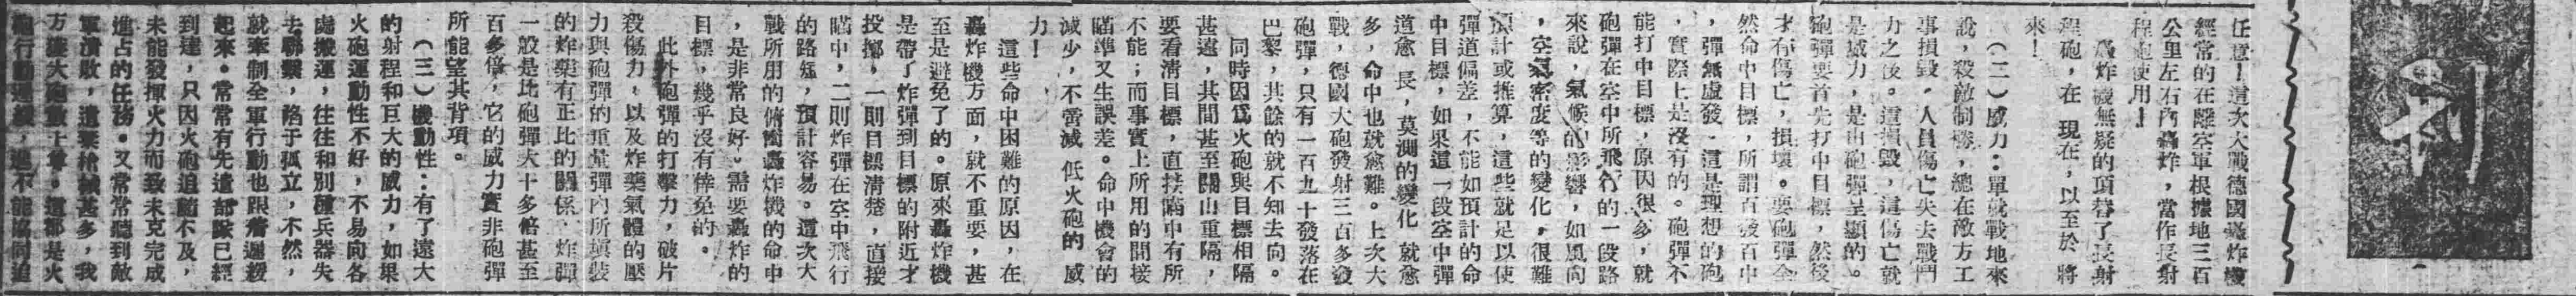 刊
任意！這次大戰德國轟炸機
經常的在離空軍根據地三百
公里左右內轟炸，當作長射
程炮使用！
轟炸機無疑的頂替了長射
程砲，在現在，以至於將
來！
（二）威力：單就戰地來
說，殺敵制勝，總在敵方工
事損毀，人員傷亡失去戰鬥
力之後。這損毀，這傷亡就
是威力，是由砲彈呈顯的。
砲彈要首先打中目標，然後
才有傷亡，損壞。要砲彈全
然命中目標，所謂百發百中
，彈無虛發，這是理想的砲
，實際上是沒有的。砲彈不
能打中目標，原因很多，就
砲彈在空中所飛行的一段路
來說，氣候的影響，如風向
，空氣密度等的變化，很難
預計或推算，這些就足以使
彈道偏差，不能如預計的命
中目標，如果這一段空中彈
道愈長，莫測的變化就愈
多，命中也就愈難。上次大
戰，德國大砲發射三百多發
砲彈，只有一百九十發落在
巴黎，其餘的就不知去向。
同時因為火砲與目標相隔
甚遠，其間甚至關山重隔，
要看清目標，直接瞄中有所
不能；而事實上所用的間接
瞄準又生誤差。命中機會的
減少，不啻減低火砲的威
力！
這些命中困難的原因，在
轟炸機方面，就不重要，甚
至是避免了的。原來轟炸機
是帶了炸彈到目標的附近才
投擲，一則目標清楚，直接
瞄中，二則炸彈在空中飛行
的路短，預計容易。這次大
戰所用的俯衝轟炸機的命中
，是非常良好。需要轟炸的
目標，幾乎沒有倖免的。
此外砲彈的打擊力，破片
殺傷力，以及炸藥氣體的壓
力與砲彈的重量彈內所填裝
的炸藥有正比的關係，炸彈
一般是比砲彈大十多倍甚至
百多倍，它的威力實非砲彈
所能望其背項。
（三）機動性：有了遠大
的射程和巨大的威力，如果
火砲運動性不好，不易向各
處搬運，往往和別種兵器失
去聯繫，陷于孤立，不然，
就牽制全軍行動也跟着遲緩
起來。常常有先遣部隊已經
到達，只因火砲追隨不及，
未能發揮火力而致未克完成
進占的任務。又常常聽到敵
軍潰敗，遺棄槍械甚多，我
方獲大砲數十尊。這都是火
砲行動遲緩，還不能協同追